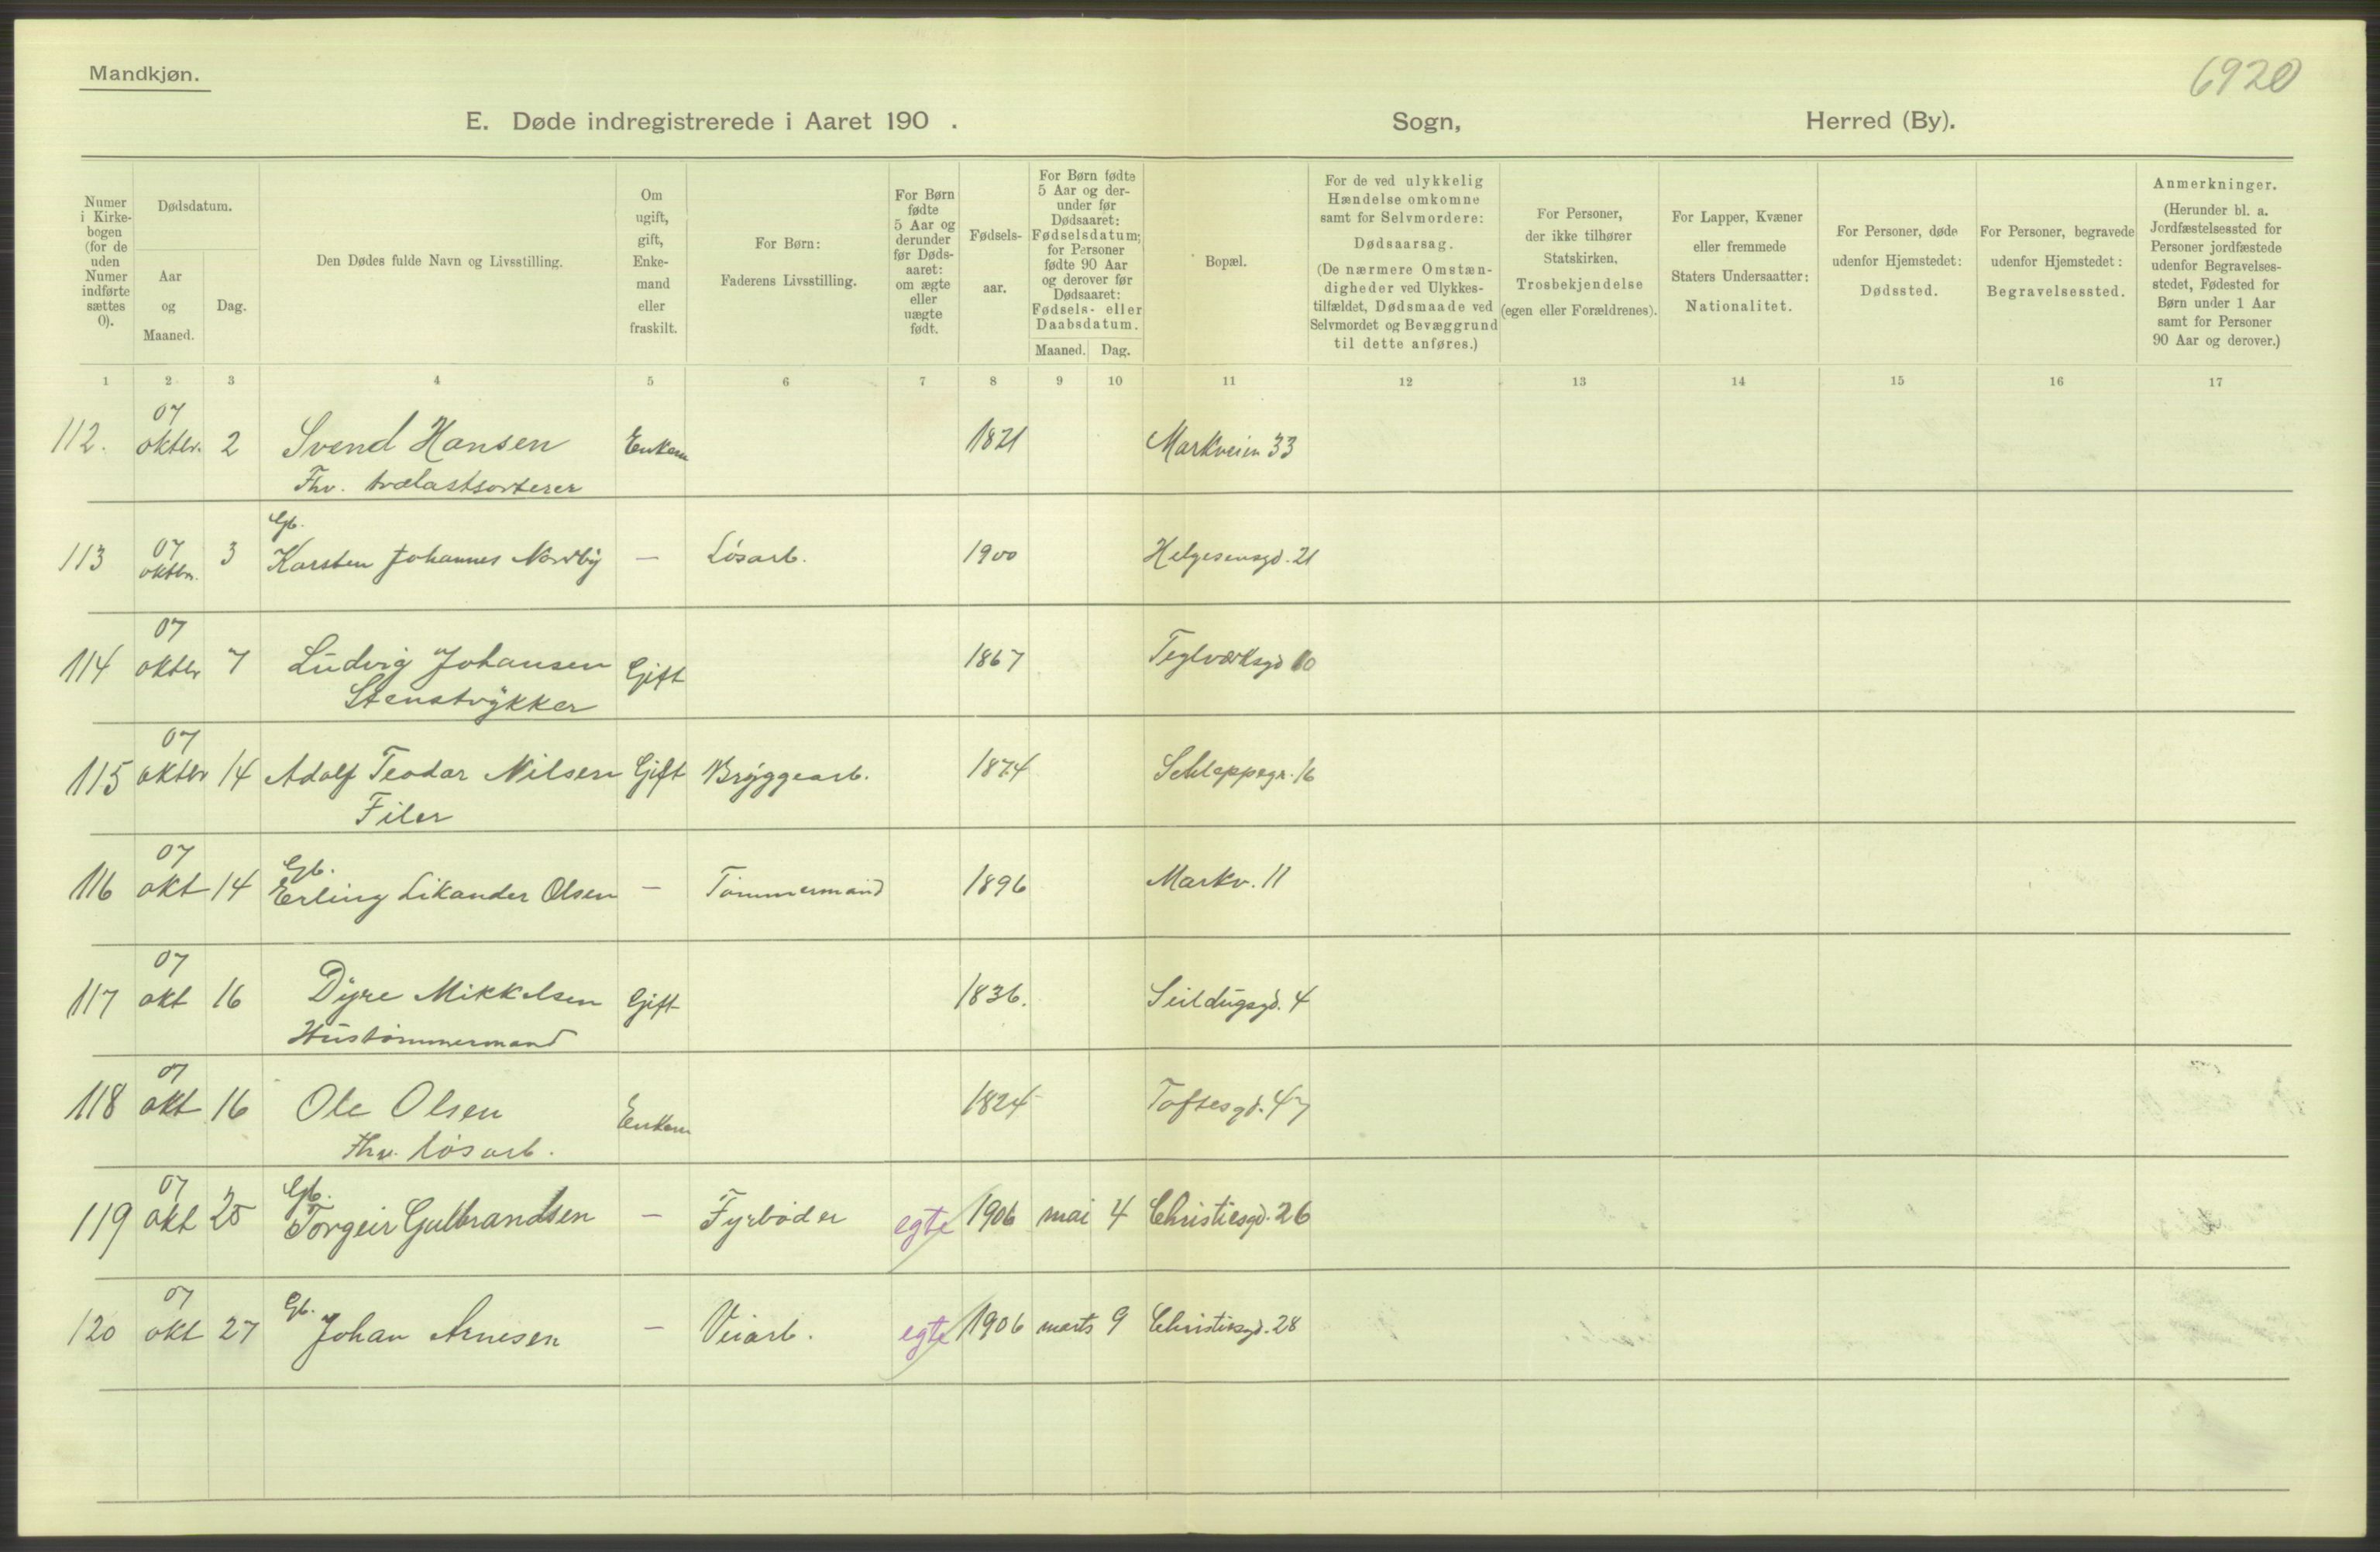 Mandkjøn.
6920
E. Døde indregistrerede i Aaret 190 . Sogn, Herred (By).
Numer i Kirkebogen (for de uden Numer indførte sættes 0).
Dødsdatum.
Aar og Maaned.
Dag.
Den Dødes fulde Navn og Livsstilling.
Om ugift, gift, Enkemand eller fraskilt.
For Børn: Faderens Livsstilling.
For Børn fødte 5 Aar og derunder før Dødsaaret: om ægte eller uægte født.
Fødselsaar.
For Børn fødte 5 Aar og derunder før Dødsaaret: Fødselsdatum; for Personer fødte 90 Aar og derover før Dødsaaret: Fødsels- eller Daabsdatum.
Maaned. Dag.
Bopæl.
For de ved ulykkelig Hændelse omkomne samt for Selvmordere: Dødsaarsag. (De nærmere Omstændigheder ved Ulykkestilfældet, Dødsmaade ved Selvmordet og Bevæggrund til dette anføres.)
For Personer, der ikke tilhører Statskirken, Trosbekjendelse (egen eller Forældrenes).
For Lapper, Kvæner eller fremmede Staters Undersaatter: Nationalitet.
For Personer, døde udenfor Hjemstedet: Dødssted.
For Personer, begravede udenfor Hjemstedet: Begravelsessted.
Anmerkninger. (Herunder bl. a. Jordfæstelsessted for Personer jordfæstede udenfor Begravelsesstedet, Fødested for Børn under 1 Aar samt for Personer 90 Aar og derover.)
1 2 3 4 5 6 7 8 9 10 11 12 13 14 15 16 17
07
112. oktbr. 2 Svend Hansen Enkem 1821 Markveien 33
Fhv. trælastsorterer
Gb.
113 07 oktbr. 3 Karsten Johannes Nordby — Løsarb. 1900 Helgesensgd. 21
07
114 oktbr 7 Ludvig Johansen Gift 1867 Teglværksgd 10
Stenstrykker
07
115 oktbr 14 Adolf Teodor Nilsen Gift Bryggearb. 1874 Schleppegr. 16
Filer
07 Gb.
116 okt 14 Erling Likander Olsen — Tømmermand 1896 Markv. 11
07
117 okt 16 Dyre Mikkelsen Gift 1836. Seildugsgd. 4
Hustømmermand
07
118 okt 16 Ole Olsen Enkem 1824 Toftesgd. 47
Fhv. løsarb.
07 Gb.
119 okt 25 Torgeir Gulbrandsen — Fyrbøder egte 1906 mai 4 Christiesgd. 26
07 Gb.
120 okt 27 Johan Arnesen — Veiarb. egte 1906 marts 9 Christiesgd. 28